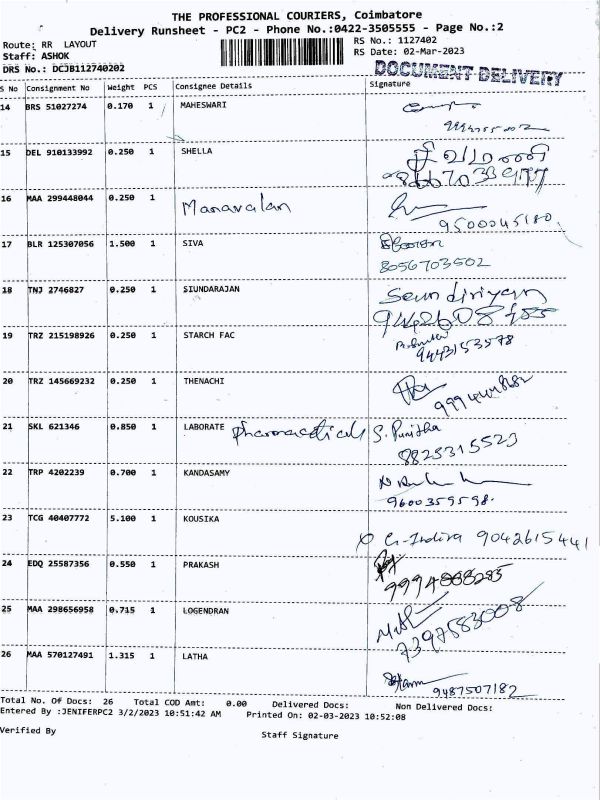 THE PROFESSIONAL COURIERS, Coimbatore
Delivery Runsheet - PC2 - Phone No.:0422-3505555 - Page No.:2
Route: RR LAYOUT
RS No.: 1127402
Staff: ASHOK
RS Date: 02-Mar-2023
DRS No.: DCJB112740202
DOCUMENT DELIVERY
S No Consignment No Weight PCS Consignee Details Signature
14 BRS 51027274 0.170 1 MAHESWARI
15 DEL 910133992 0.250 1 SHELLA
16 MAA 299448044 0.250 1 Manavalan
9500045180
17 BLR 125307056 1.500 1 SIVA
8056703502
18 TNJ 2746827 0.250 1 SIUNDARAJAN
19 TRZ 215198926 0.250 1 STARCH FAC
9443153578
20 TRZ 145669232 0.250 1 THENACHI
21 SKL 621346 0.850 1 LABORATE Pharmaceticals S. Punitha
8825315523
22 TRP 4202239 0.700 1 KANDASAMY
9600359598.
23 TCG 40407772 5.100 1 KOUSIKA
G-Indira 9042615441
24 EDQ 25587356 0.550 1 PRAKASH
25 MAA 298656958 0.715 1 LOGENDRAN
7397583008
26 MAA 570127491 1.315 1 LATHA
9487507182
Total No. Of Docs: 26 Total COD Amt: 0.00 Delivered Docs: Non Delivered Docs:
Entered By :JENIFERPC2 3/2/2023 10:51:42 AM Printed On: 02-03-2023 10:52:08
Verified By
Staff Signature